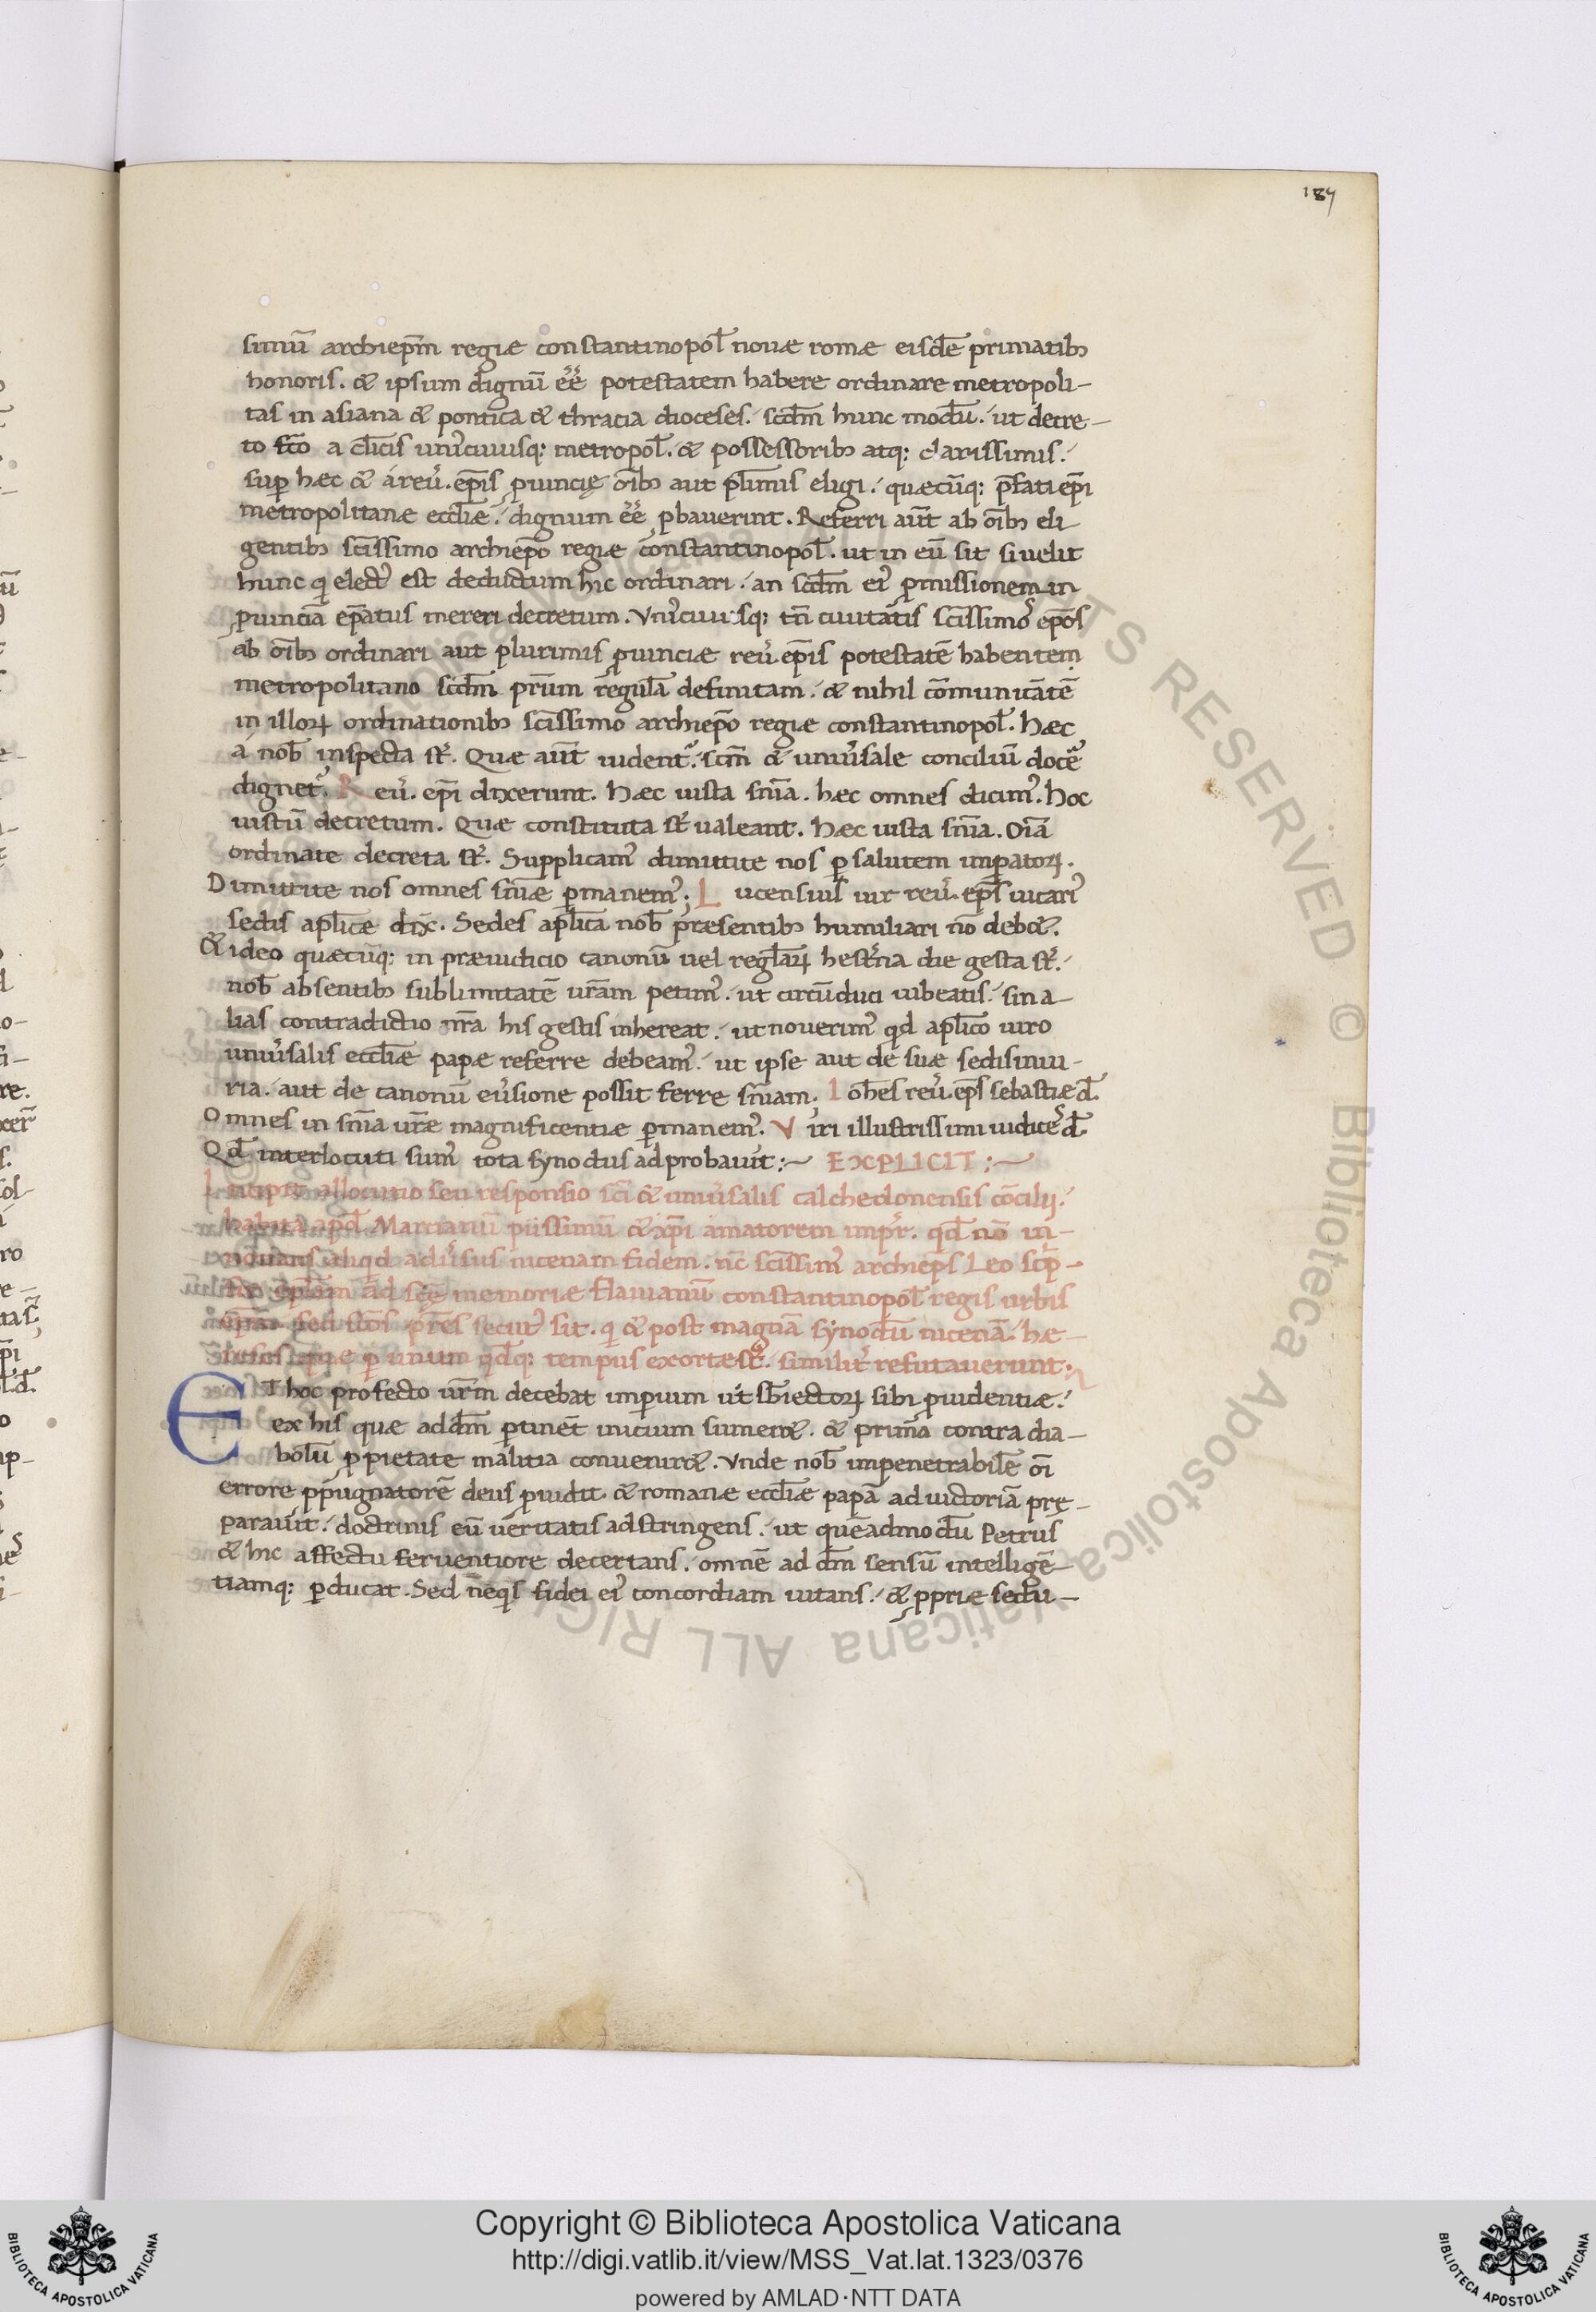 184
simū archiep̄m regiæ constantinopol̄ nouæ romæ eisdē primatib;
honoris. & ipsum dignū ēē potestatem habere ordinare metropoli-
tas in asiana & pontica & thracia dioceses. scd̄m hunc modū. ut decre-
to fc̄o a cl̄icis uni᾽cuiusq: metropol̄. & possessorib; atq: clarissimis.
sup̱ hæc & a reu᾽. ep̄is ꝓuincię oīb; aut pl̄imis eligi. quæcūq: p̄fati ep̄i
metropolitanæ eccl̄iæ. dignum ēē ꝓbauerint. Referri aūt ab oīb; eli
gentib; sc̄issimo archiep̄o regiæ constantinopol̄. ut in eū sit si uelit
hunc qi elect᾽ est deductum hic ordinari. an scd̄m ei᾽ p̱missionem in
ꝓuinciā ep̄atus mereri decretum. Vni᾽cuiusq: tn̄ ciuitatis sc̄issimos ep̄os
ab oīb; ordinari aut plurimis ꝓuinciæ reu᾽. ep̄is potestatē habentem
metropolitano scd̄m pr̄um regulā definitam. & nihil cōmunicātē
in illoꝝ ordinationib; sc̄issimo archiep̄o regiæ constantinopol̄. Hæc
a nob̄ inspecta st̄. Quæ aūt uident᾽. sc̄m & uniu᾽sale conciliū docē
dignet᾽. Reu᾽. ep̄i dixerunt. Hæc iusta sn̄ia. hæc omnes dicim᾽. hoc
iustū decretum. Quæ constituta st̄ ualeant. Hæc iusta sn̄ia. Oīa
ordinate decreta st̄. Supplicam᾽ dimittite nos p̱ salutem imp̱atoꝝ.
Dimittite nos omnes sn̄iæ p̱manem᾽; Lucensius uir reu᾽. ep̄s uicari᾽
sedis apl̄icæ dix̄. Sedes apl̄ica nob̄ præsentib; humiliari nō deb&.
& ideo quæcūq: in præiudicio canonū uel regl̄aꝝ hest᾽na die gesta st̄.
nob̄ absentib; sublimitatē ur̄am petim᾽. ut circūduci iubeatis. sin a-
lias contradictio nr̄a his gestis inhereat. ut nouerim᾽ qd̄ apl̄ico uiro
uniu᾽salis eccl̄iæ papæ referre debeam᾽. ut ipse aut de suæ sedis iniu-
ria. aut de canonū eu᾽sione possit ferre sn̄iam; Ioh̄es reu᾽. ep̄s sebastiæ d̄.
Omnes in sn̄ia ur̄æ magnificentiæ p̱manem᾽. Viri illustrissimi iudices d̄.
Qd̄ interlocuti sum᾽ tota synodus adprobauit:~ EXPLICIT:~
Incipit allocutio seu responsio sc̄i & uniu᾽salis calchedonensis cōcilij.
habita apd̄ Marcianū piissimū & xp̄i amatorem imp̱r̄. qd̄ nō in-
nouans aliqd adu᾽sus nicenam fidem. nc̄ sc̄issim᾽ archiep̄s Leo scp̄-
ep̄lam ad scę memoriæ Flauianū constantinopol̄ regis urbis
ep̄m sed sc̄os pr̄es secut᾽ sit. qi & post magnā synodū nicenā. hæ-
reses quæ p̱ unum qd̄q: tempus exortæ st̄. similit᾽ refutauerunt:
ET hoc profecto ur̄m decebat imp̱ium ut sb̄iectoꝝ sibi ꝓuidentiæ.
ex his quæ ad dm̄ p̱tinēt inicium sumer&. & prim̄a contra dia-
bolū p̱ pietate malitia conuenir&. Vnde nob̄ impenetrabilē oī
errore ꝓpugnatorē deus ꝓuidit. & romanæ eccl̄iæ papā ad uictoriā prę-
parauit. doctrinis eū ueritatis adstringens. ut quēadmodū Petrus
& hic affectu feruentiore decertans. omnē ad dm̄ sensū intelligē-
tiamq: p̱ducat. Sed neqis fidei ei᾽ concordiam uitans. & ꝓpriæ sedu-
Copyright © Biblioteca Apostolica Vaticana
http://digi.vatlib.it/view/MSS_Vat.lat.1323/0376
powered by AMLAD·NTT DATA